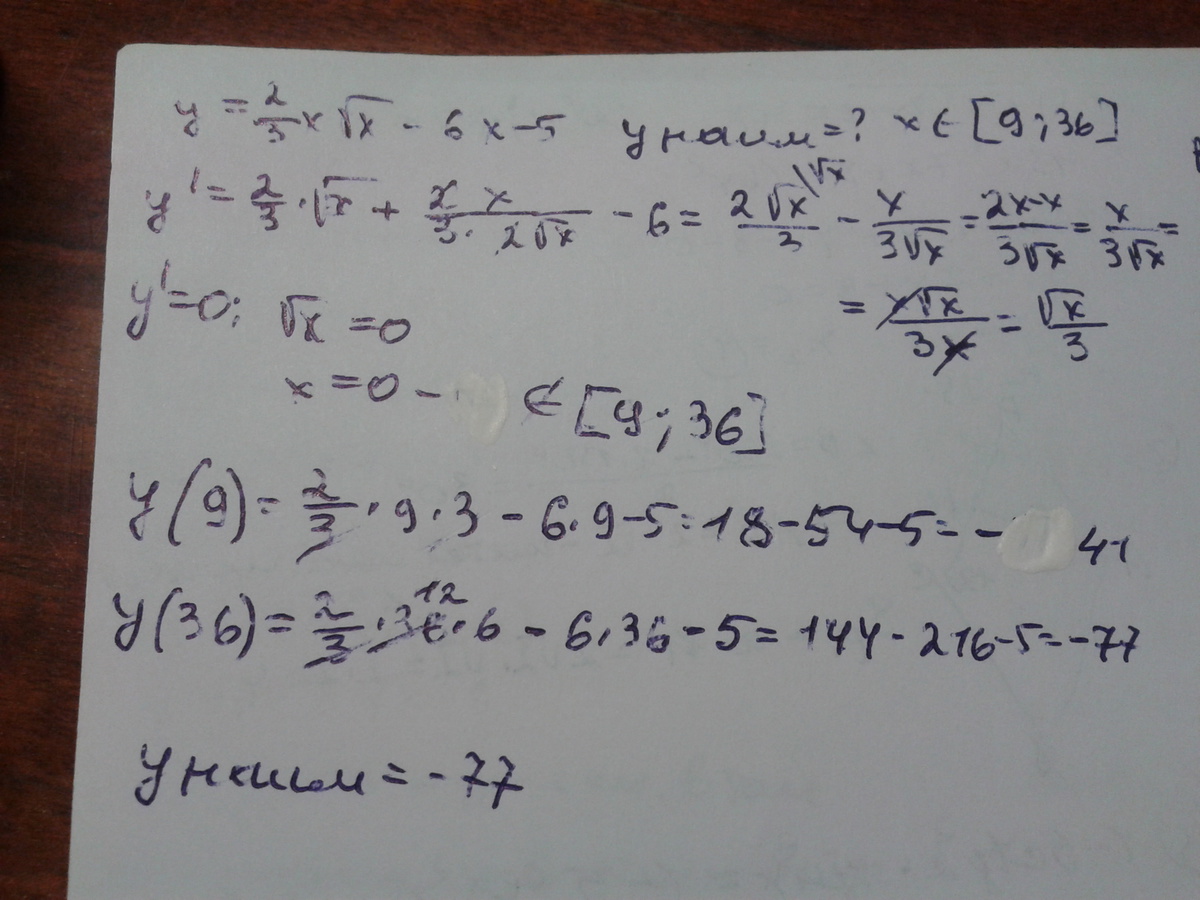 y = 2/3 x √x - 6x - 5 y наим = ? x ∈ [9; 36]
y' = 2/3 · √x + 2/3 · x/2√x - 6 = 2√x/3 \√x - x/3√x = 2x-x/3√x = x/3√x =
= x√x/3x = √x/3
y' = 0; √x = 0
x = 0 - ∉ [9; 36]
y(9) = 2/3 · 9 · 3 - 6·9 - 5 = 18 - 54 - 5 = - 41
y(36) = 2/3 · 36 12 · 6 - 6·36 - 5 = 144 - 216 - 5 = -77
y наим = -77